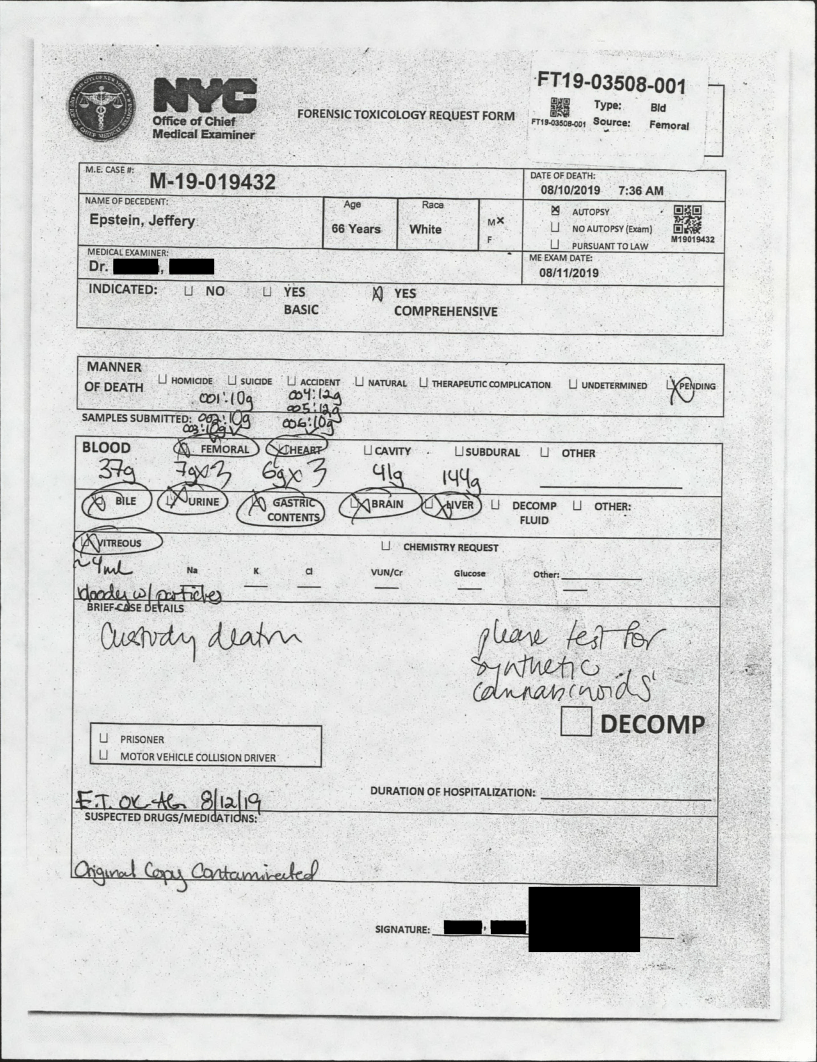 FT19-03508-001
Type: Bld
FT19-03508-001 Source: Femoral
NYC
Office of Chief
Medical Examiner
FORENSIC TOXICOLOGY REQUEST FORM
M.E. CASE #:
M-19-019432
DATE OF DEATH:
08/10/2019 7:36 AM
NAME OF DECEDENT:
Epstein, Jeffery
Age
66 Years
Race
White
M X
F
AUTOPSY
NO AUTOPSY (Exam)
PURSUANT TO LAW
M19019432
MEDICAL EXAMINER:
Dr. ,
ME EXAM DATE:
08/11/2019
INDICATED: NO YES YES
BASIC COMPREHENSIVE
MANNER
OF DEATH HOMICIDE SUICIDE ACCIDENT NATURAL THERAPEUTIC COMPLICATION UNDETERMINED PENDING
001:10g 004:12g
005:12g
SAMPLES SUBMITTED: 002:10g 006:10g
003:10g
BLOOD FEMORAL HEART CAVITY SUBDURAL OTHER
37g 7g x 3 6g x 3 41g 144g
BILE URINE GASTRIC CONTENTS BRAIN LIVER DECOMP FLUID OTHER:
VITREOUS CHEMISTRY REQUEST
~4ml
Na K Cl VUN/Cr Glucose Other:
bloody w/ particles
BRIEF CASE DETAILS
Custody death
please test for
synthetic
cannabinoids
DECOMP
PRISONER
MOTOR VEHICLE COLLISION DRIVER
DURATION OF HOSPITALIZATION:
E.T. OK 8/12/19
SUSPECTED DRUGS/MEDICATIONS:
Original Copy Contaminated
SIGNATURE: ,